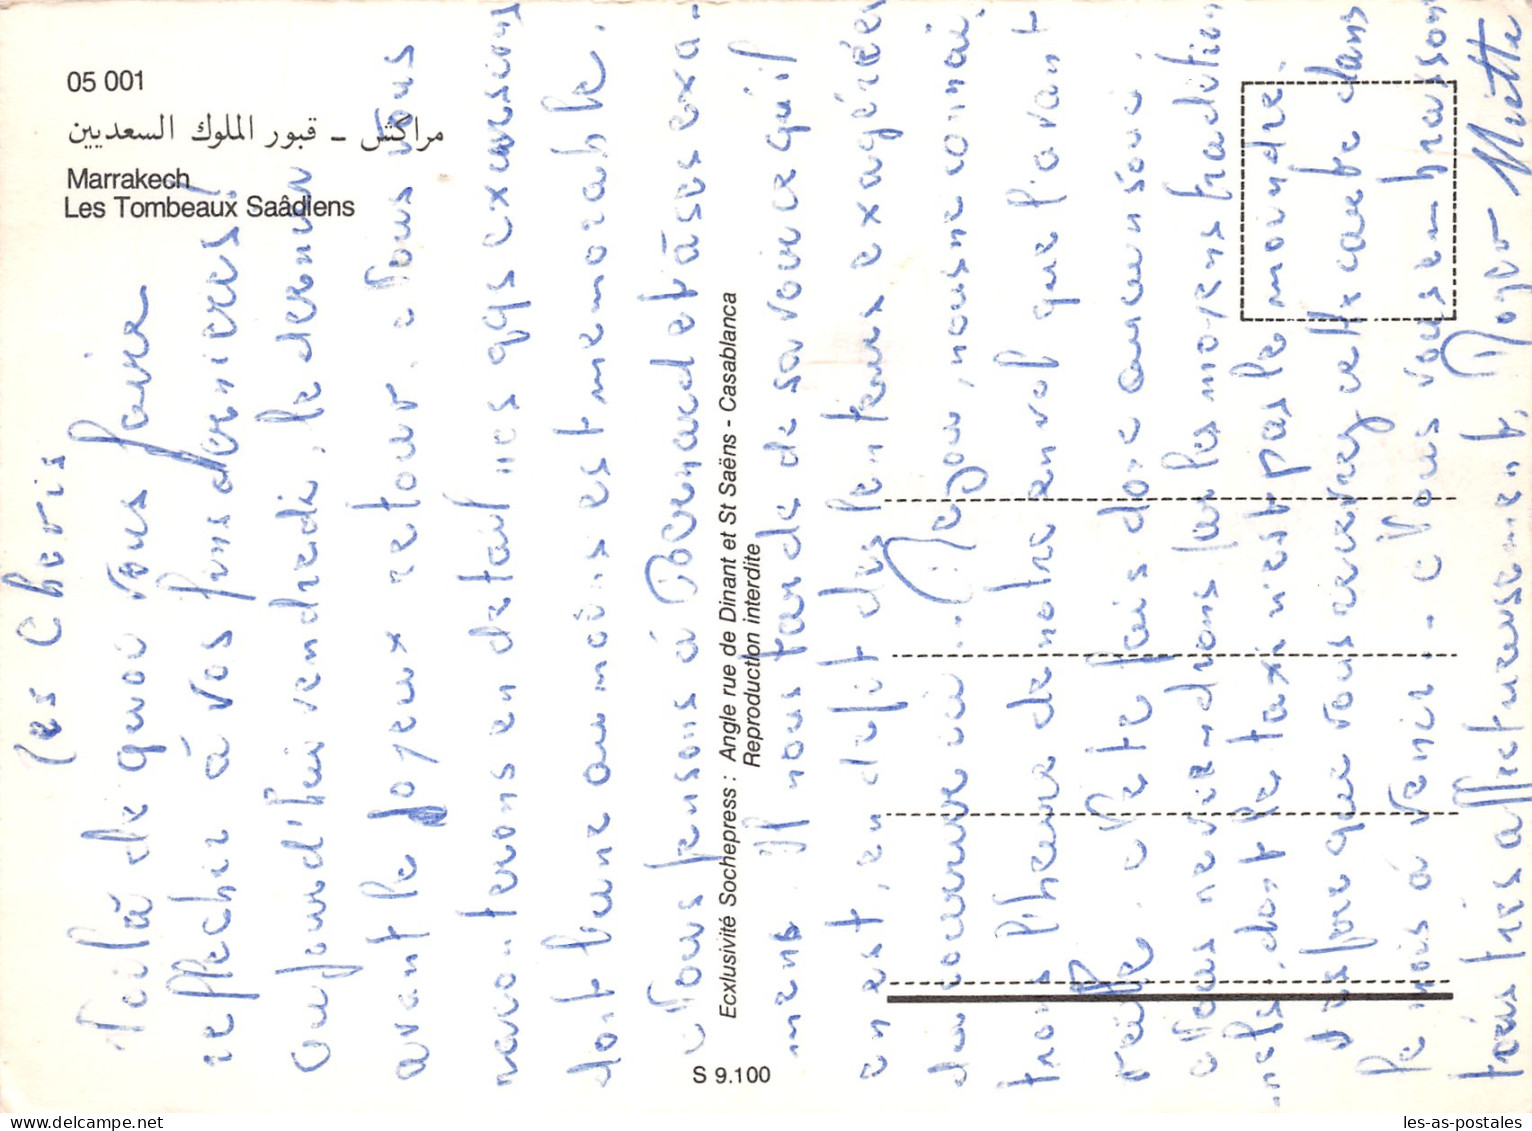 05 001
مراكش – قبور الملوك السعديين
Marrakech
Les Tombeaux Saâdiens
Ecxlusivité Sochepress : Angle rue de Dinant et St Saëns - Casablanca
Reproduction interdite
S 9.100
les Cheris
Voilà de quoi vous faire
reflechir à vos fins dernieres !
Aujourd'hui vendredi, le dernier
avant le joyeux retour. Nous vous
raconterons en detail nos qqs excursions
dont l'une au moins est memorable.
Nous pensons à Bernard et à ses exa-
mens Il nous tarde de savoir ce qu'il
en est, en depit des lenteurs exagérées
du courrier ici...
trons l'heure de notre envol que l'avant
veille. Ne te fais donc aucun souci
Nous reviendrons par les moyens tradition
nels, dont le taxi n'est pas le moindre.
que vous recevrez cette carte dans
le mois à venir... Nous vous embrassons
très très affectueusement.
Miette
les-as-postales